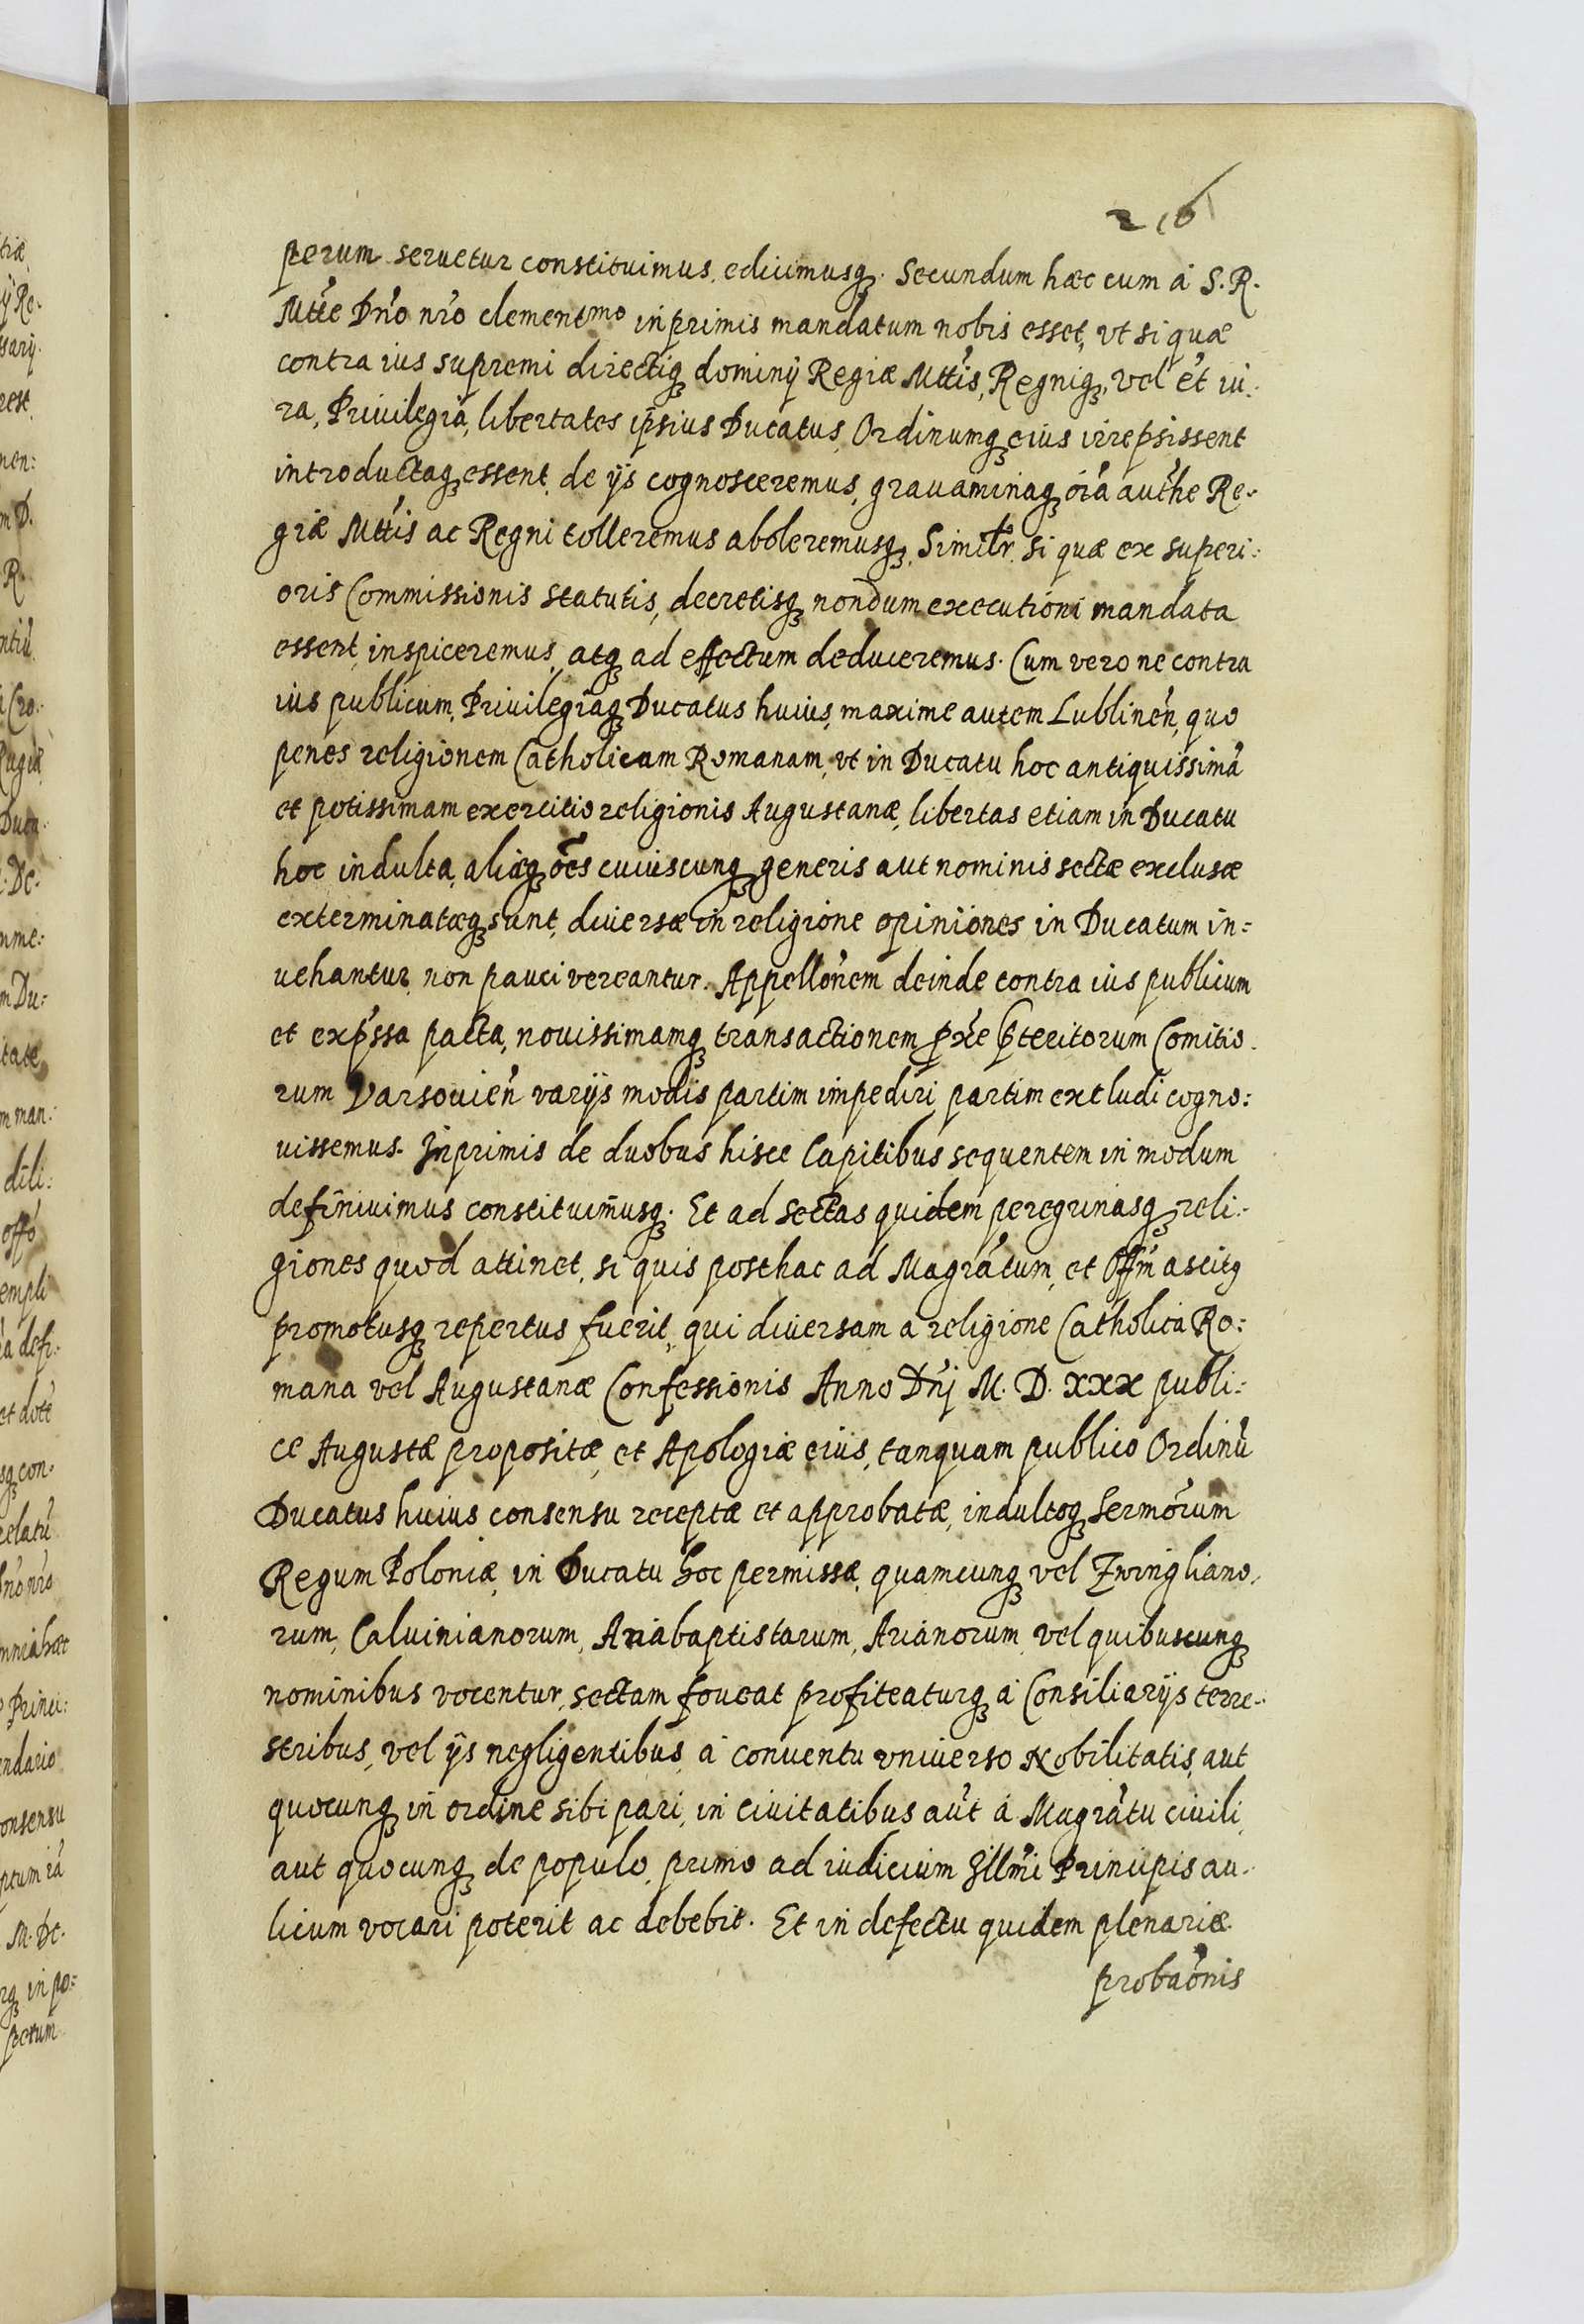 216
perum seruetur constituimus, edicimusq3. Secundum hæc cum á S. R.
Mtte Dn̄o nr̄o clementmo inprimis mandatum nobis esset, vt si quæ
contra ius supremi directiq3 dominÿ Regiæ Mttis, Regniq3, vel et iu:
ra, Priuilegia, libertates ip̄sius Ducatus, Ordinumq3 eius irrepsissent
introductaq3 essent, de ÿs cognosceremus, grauaminaq3 oīa auth̄e Re:
giæ Mttis ac Regni tolleremus aboleremusq3. Simil̄r si quæ ex superi:
oris Commissionis statutis, decretisq3 nondum executioni mandata
essent, inspiceremus, atq3 ad effectum deduceremus. Cum vero ne contra
ius publicum, Priuilegiaq3 Ducatus huius, maxime autem Lublinen̄, quo
penes religionem Catholicam Romanam, vt in Ducatu hoc antiquissimā
et potissimam exercitio religionis Augustanæ, libertas etiam in Ducatu
hoc indulta, aliæq3 oēs cuiuscunq3 generis aut nominis sectæ exclusæ
exterminatæq3 sunt, diuersæ in religione opiniones in Ducatum in=
uehantur, non pauci vereantur. Appellōnem deinde contra ius publicum
et exp̄ssa pacta, nouissimamq3 transactionem p̄xe p̄teritorum Comitio.
rum Varsouien̄ varÿs modis partim impediri partim excludi cogno:
uissemus. Inprimis de duobus hisce Capitibus sequentem in modum
definiuimus constituimusq3. Et ad sectas quidem peregrinasq3 reli:
giones quod attinet, si quis posthac ad Magrātum, et Offm̄ ascitq
promotusq3 repertus fuerit, qui diuersam a religione Catholica Ro:
mana vel Augustanæ Confessionis Anno Dn̄j M. D. XXX publi:
ce Augustæ propositæ, et Apologiæ eius, tanquam publico Ordinū
Ducatus huius consensu receptæ et approbatæ, indultoq3 Sermōrum
Regum Poloniæ, in Ducatu hoc permissæ, quamcunq3 vel Zwingliano,
rum, Caluinianorum, Anabaptistarum, Arianorum, vel quibuscunq3
nominibus vocentur, sectam foueat profiteaturq3 á Consiliarÿs terre:
stribus, vel ÿs negligentibus, á conuentu vniuerso Nobilitatis, aut
quocunq3 in ordine sibi pari, in ciuitatibus aūt á Magrātu ciuili,
aut quocunq3 de populo, primo ad iudicium Illm̄i Principis au:
licum vocari poterit ac debebit. Et in defectu quidem plenariæ
probaōnis